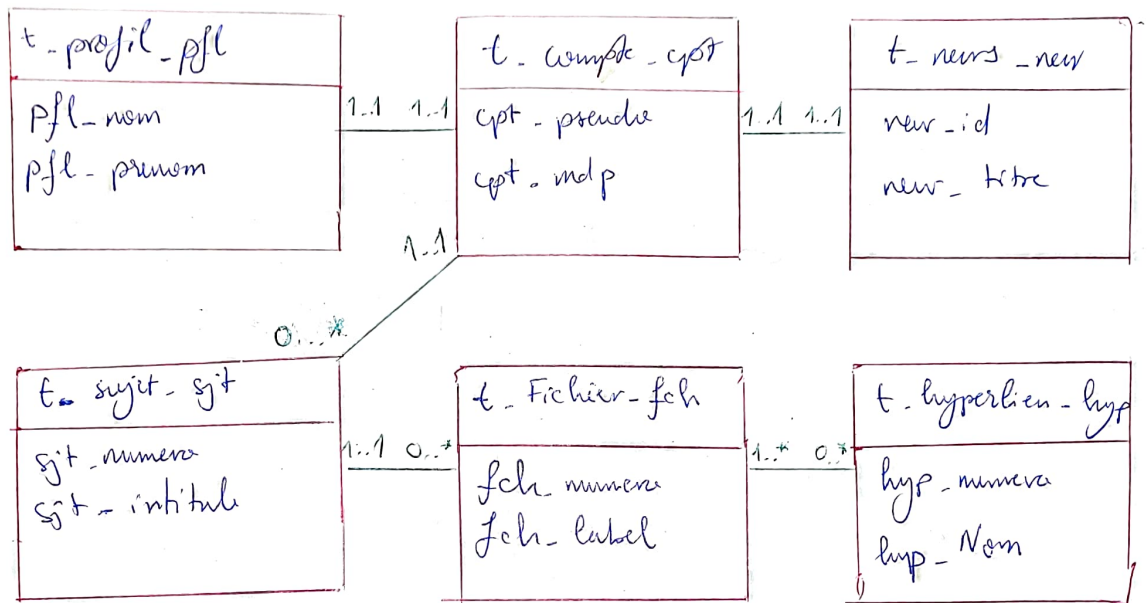 t_profil_pfl
pfl_nom
pfl_prenom
1..1 1..1
t_compte_cpt
cpt_pseudo
cpt_mdp
1..1 1..1
t_news_new
new_id
new_titre
1..1
0...*
t_sujet_sjt
sjt_numero
sjt_intitule
1..1 0..*
t_Fichier_fch
fch_numero
fch_label
1..* 0..*
t_hyperlien_hyp
hyp_numero
hyp_Nom